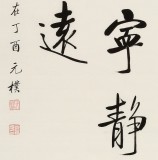 寧靜
遠
在丁酉元樸